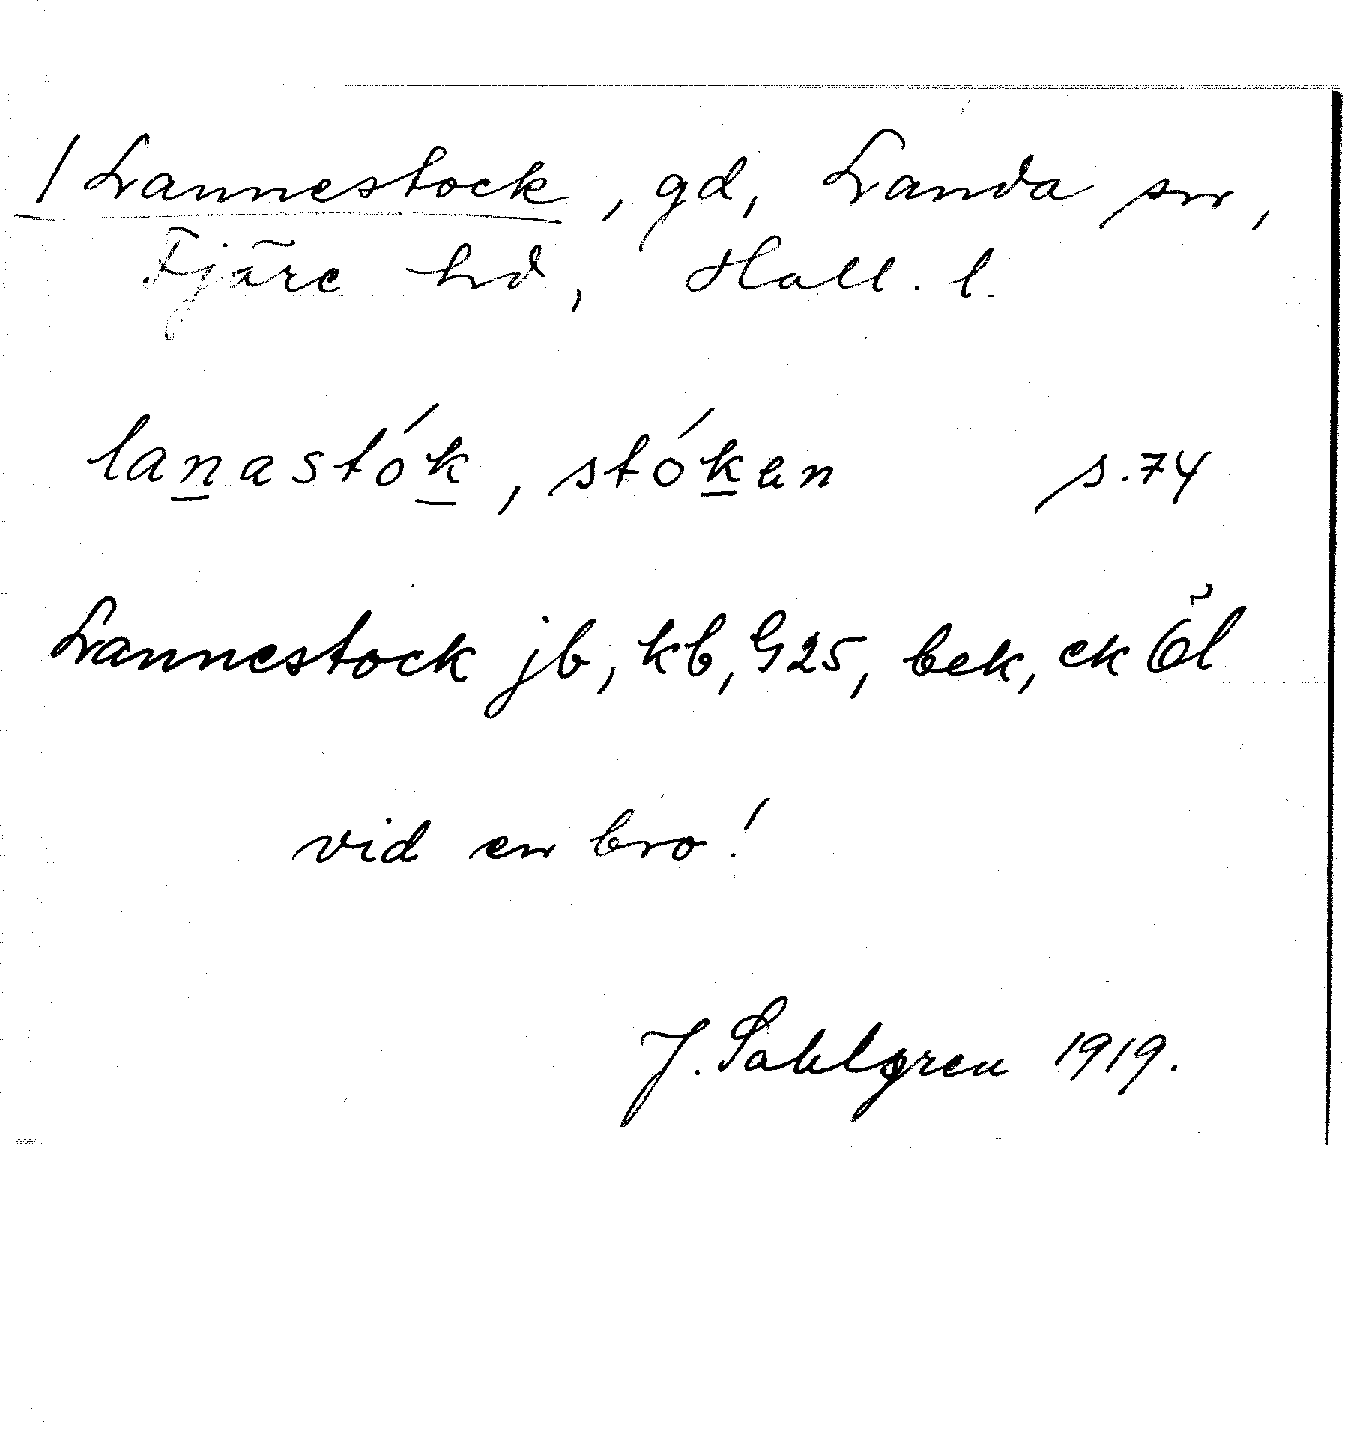 / Lannestock, gd, Landa sn,
Fjäre hd, Hall. l.
lanastók, stóken s.74
Lannestock jb, kb, G25, bek, ek öl
vid en bro!
J. Sahlgren 1919.